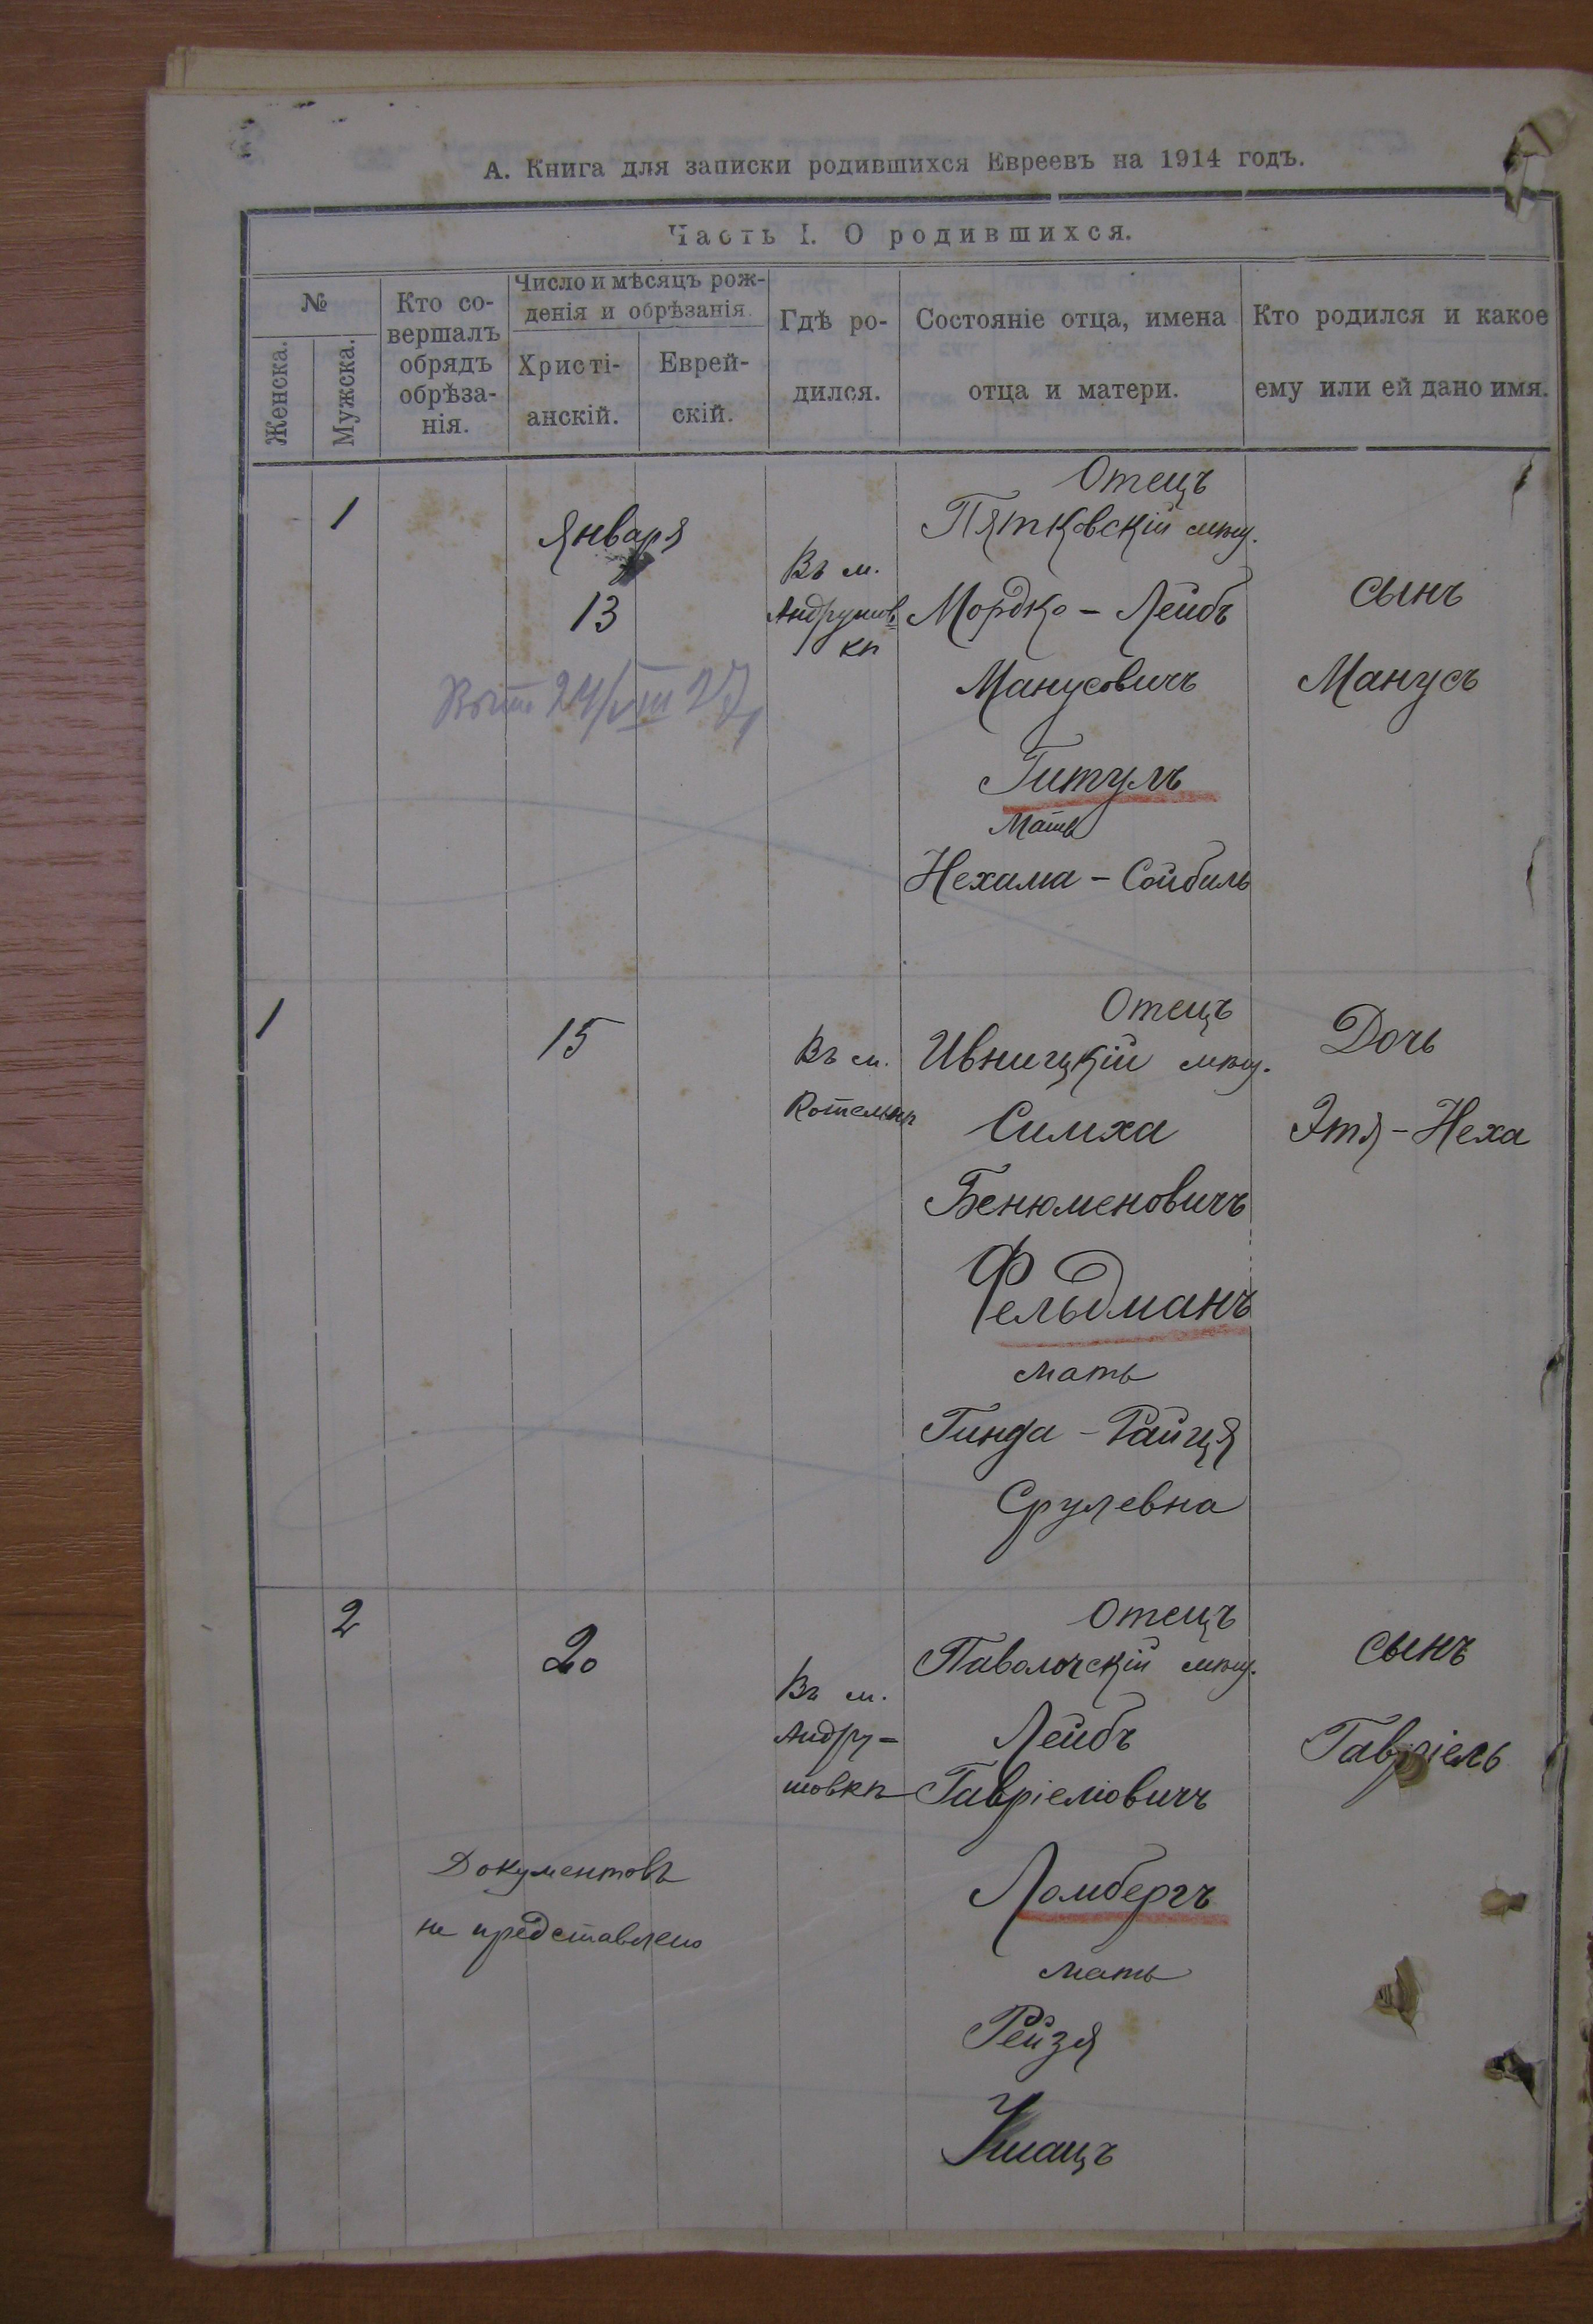 А. Книга для записки родившихся Евреевъ на 1914 годъ.
Часть I. О родившихся.
№
Женска.
Мужска.
Кто со-
вершалъ
обрядъ
обрѣза-
нія.
Число и мѣсяцъ рож-
денія и обрѣзанія.
Христі-
анскій.
Еврей-
скій.
Гдѣ ро-
дился.
Состояніе отца, имена
отца и матери.
Кто родился и какое
ему или ей дано имя.
1
Января
13
24/VIII 27
Въ м.
Андрушов
кѣ
Отецъ
Пятковскій мѣщ.
Мордко - Лейбъ
Манусовичъ
Гитулъ
Мать
Нехама - Сойбиль
сынъ
Манусъ
1
15
Въ м.
Котельнѣ
Отецъ
Ивницкій мѣщ.
Симха
Бенюменовичъ
Фельдманъ
мать
Гинда - Райця
Срулевна
Дочь
Этя - Неха
2
20
Въ м.
Андру-
шовкѣ
Документовъ
не представлено
Отецъ
Паволочскій мѣщ.
Лейбъ
Гавріеліовичъ
Ломбергъ
мать
Рейзя
сынъ
Гавріель